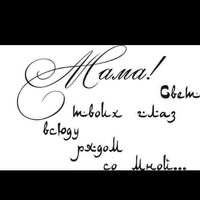 Мама!
Свет
твоих глаз
всюду
рядом
со мной...